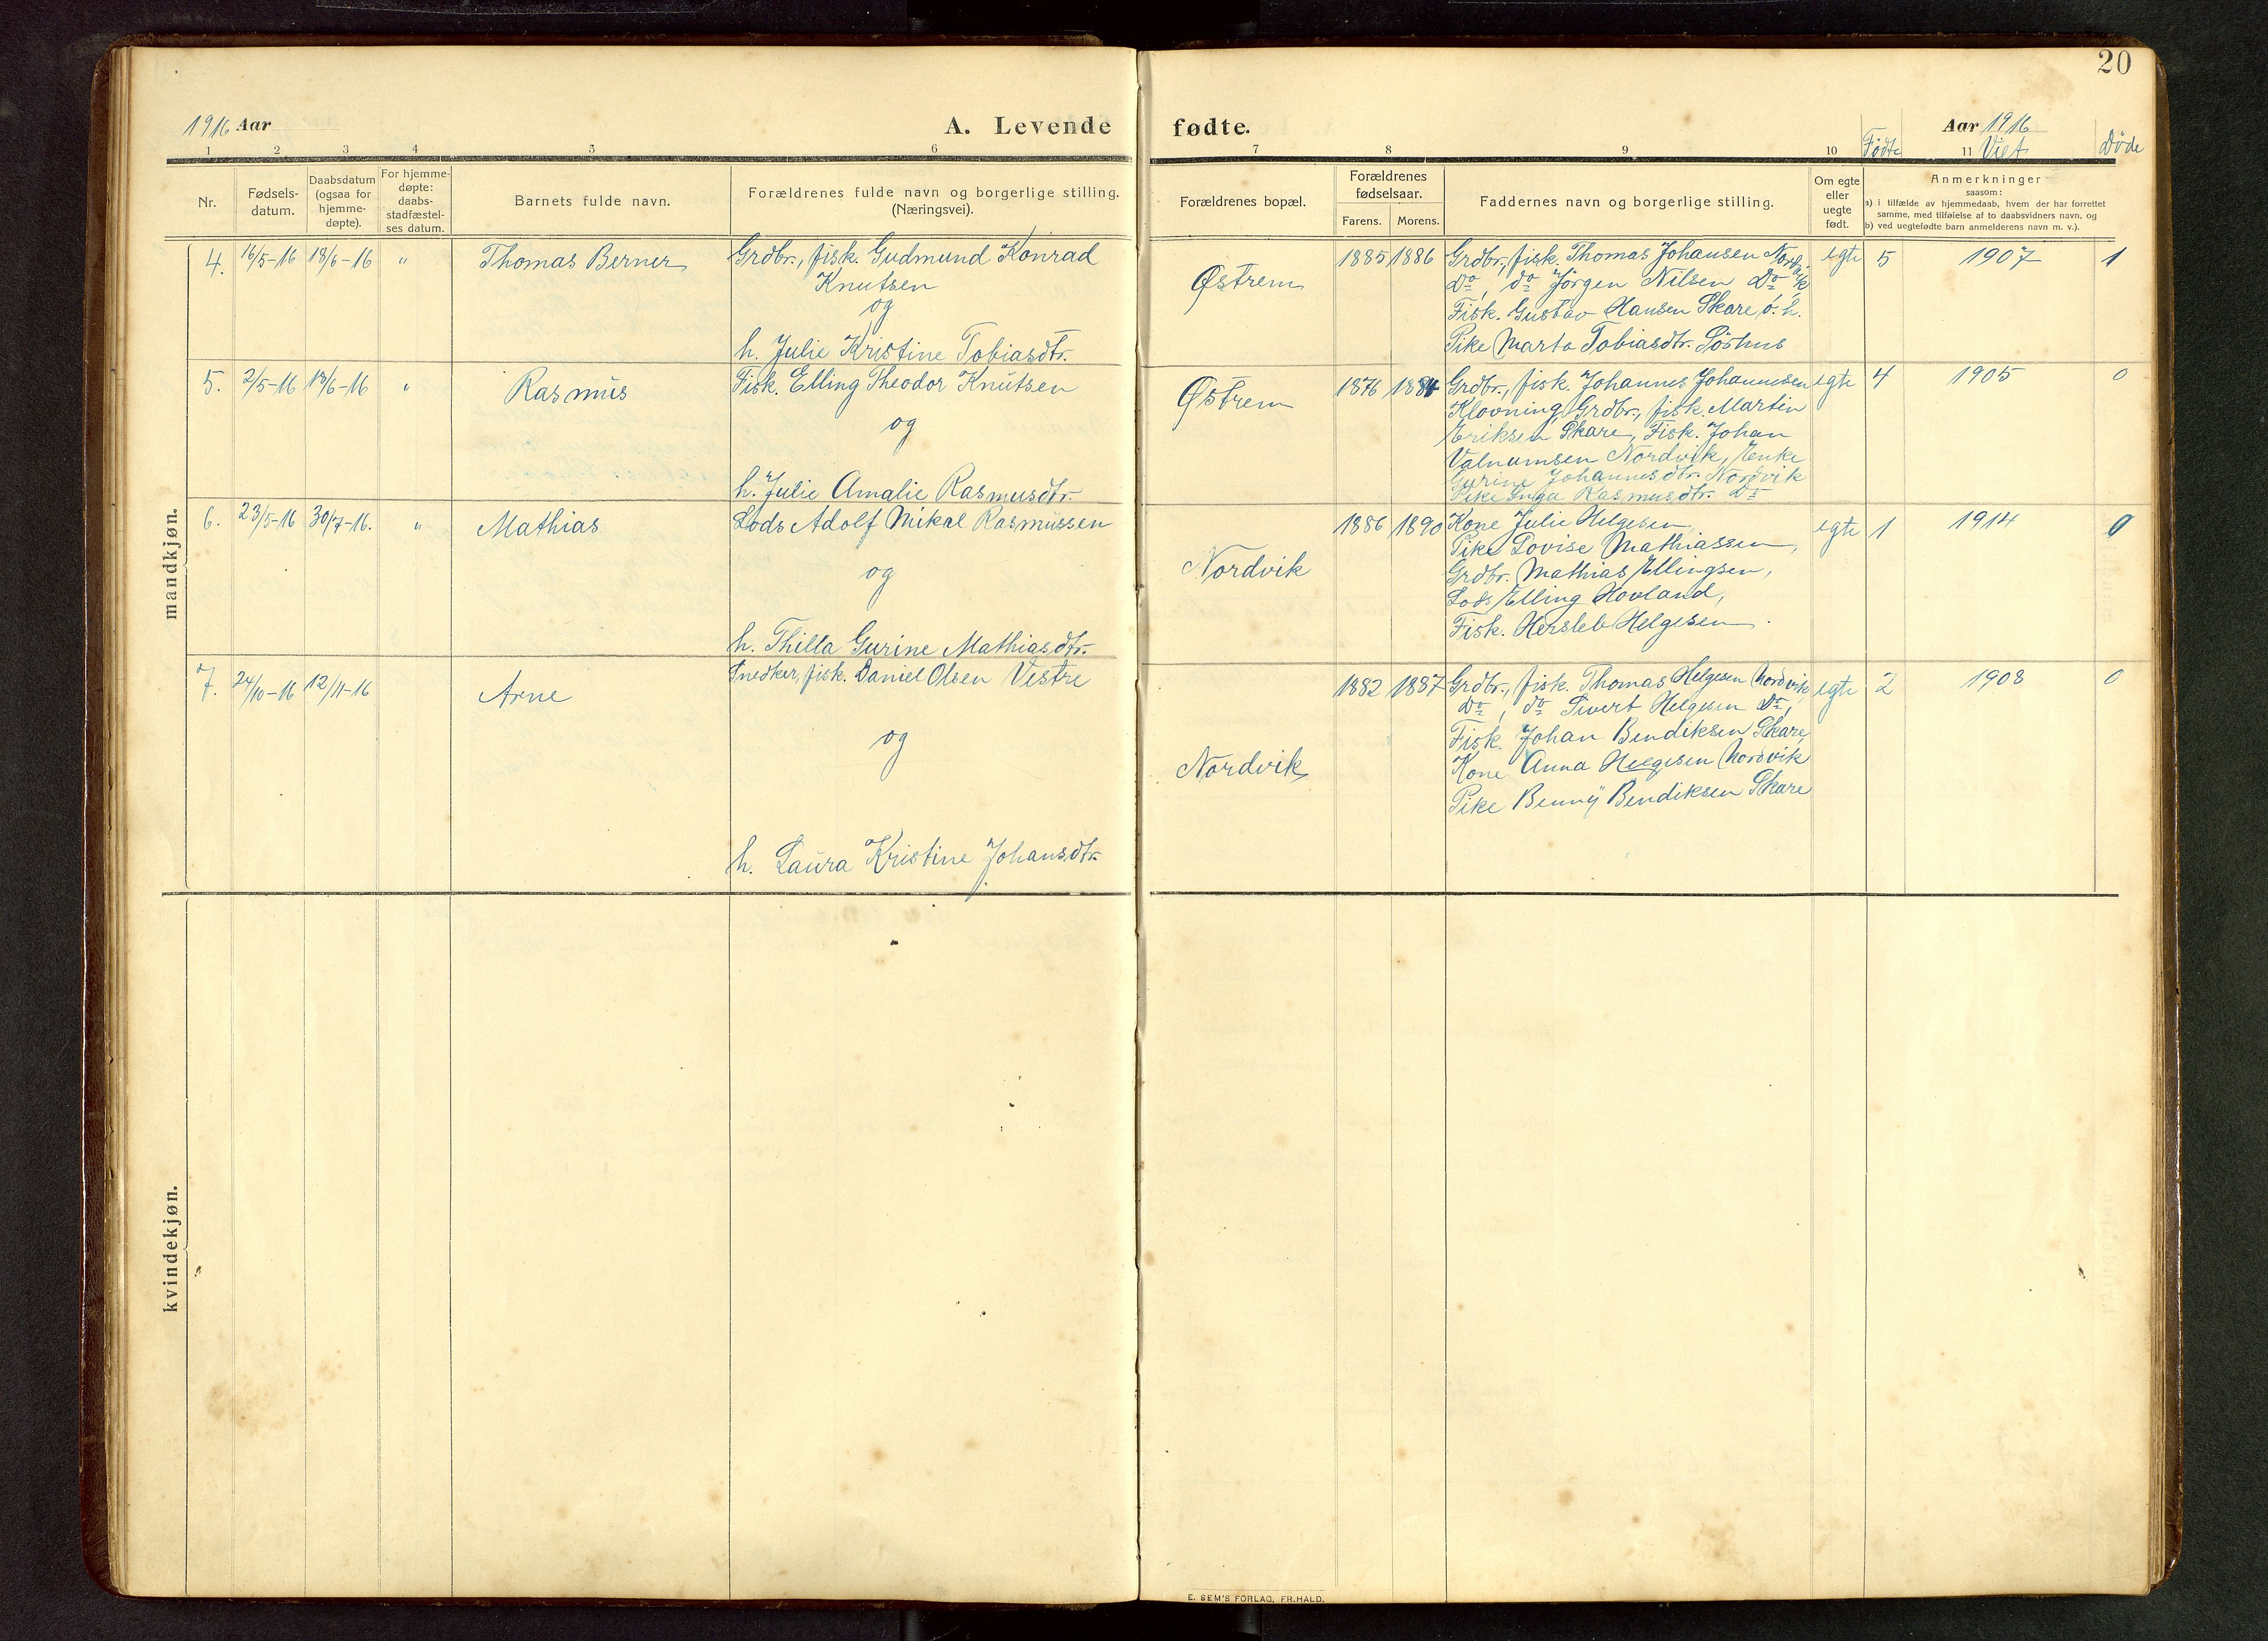 20
1916 Aar
A. Levende fødte.
Aar 1916
1 2 3 4 5 6 7 8 9 10 Fødte 11 Viet Døde
Nr.
Fødsels-
datum.
Daabsdatum
(ogsaa for
hjemme-
døpte).
For hjemme-
døpte:
daabs-
stadfæstel-
ses datum.
Barnets fulde navn.
Forældrenes fulde navn og borgerlige stilling.
(Næringsvei).
Forældrenes bopæl.
Forældrenes
fødselsaar.
Farens. Morens.
Faddernes navn og borgerlige stilling.
Om egte
eller
uegte
født.
Anmerkninger
saasom:
a) i tilfælde av hjemmedaab, hvem der har forrettet
samme, med tilføielse av to daabsvidners navn, og
b) ved uegtefødte barn anmelderens navn m. v.).
mandkjøn.
4. 16/5-16 18/6-16 " Thomas Berner
Grdbr., fisk. Gudmund Konrad
Knutsen
og
h. Julie Kristine Tobiasdtr.
Østrem
1885 1886
Grdbr., fisk. Thomas Johansen Nordvik
Do, do Jörgen Nilsen Do,
Fisk. Gustav Hansen Skare, o. h.
Pike Marta Tobiasdtr. Sörhus
egte 5 1907 1
5. 2/5-16 18/6-16 " Rasmus
Fisk. Elling Theodor Knutsen
og
h. Julie Amalie Rasmusdtr.
Østrem
1876 1884
Grdbr., fisk. Johannes Johannesen
Klovning, Grdbr., fisk. Martin
Eriksen Skare, Fisk. Johan
Valnumsen Nordvik, Enke
Gurine Johannesdtr. Nordvik
Pike Inga Rasmusdtr. Do
egte 4 1905 0
6. 23/5-16 30/7-16. " Mathias
Lods Adolf Mikal Rasmussen
og
h. Thilla Gurine Mathiasdtr.
Nordvik
1886 1890
Kone Julie Helgesen,
Pike Lovise Mathiassen,
Grdbr. Mathias Ellingsen,
Lods Elling Hovland,
Fisk. Hersleb Helgesen.
egte 1 1914 0
7. 24/10-16 12/11-16 Arne
Snedker, fisk. Daniel Olsen Vestre
og
h. Laura Kristine Johansdtr.
Nordvik
1882 1887
Grdbr., fisk. Thomas Helgesen Nordvik,
Do, do Sivert Helgesen Do,
Fisk. Johan Bendiksen Skare,
Kone Anna Helgesen Nordvik
Pike Benny Bendiksen Skare
egte 2 1908 0
kvindekjøn.
E. SEM'S FORLAG, FR.HALD.